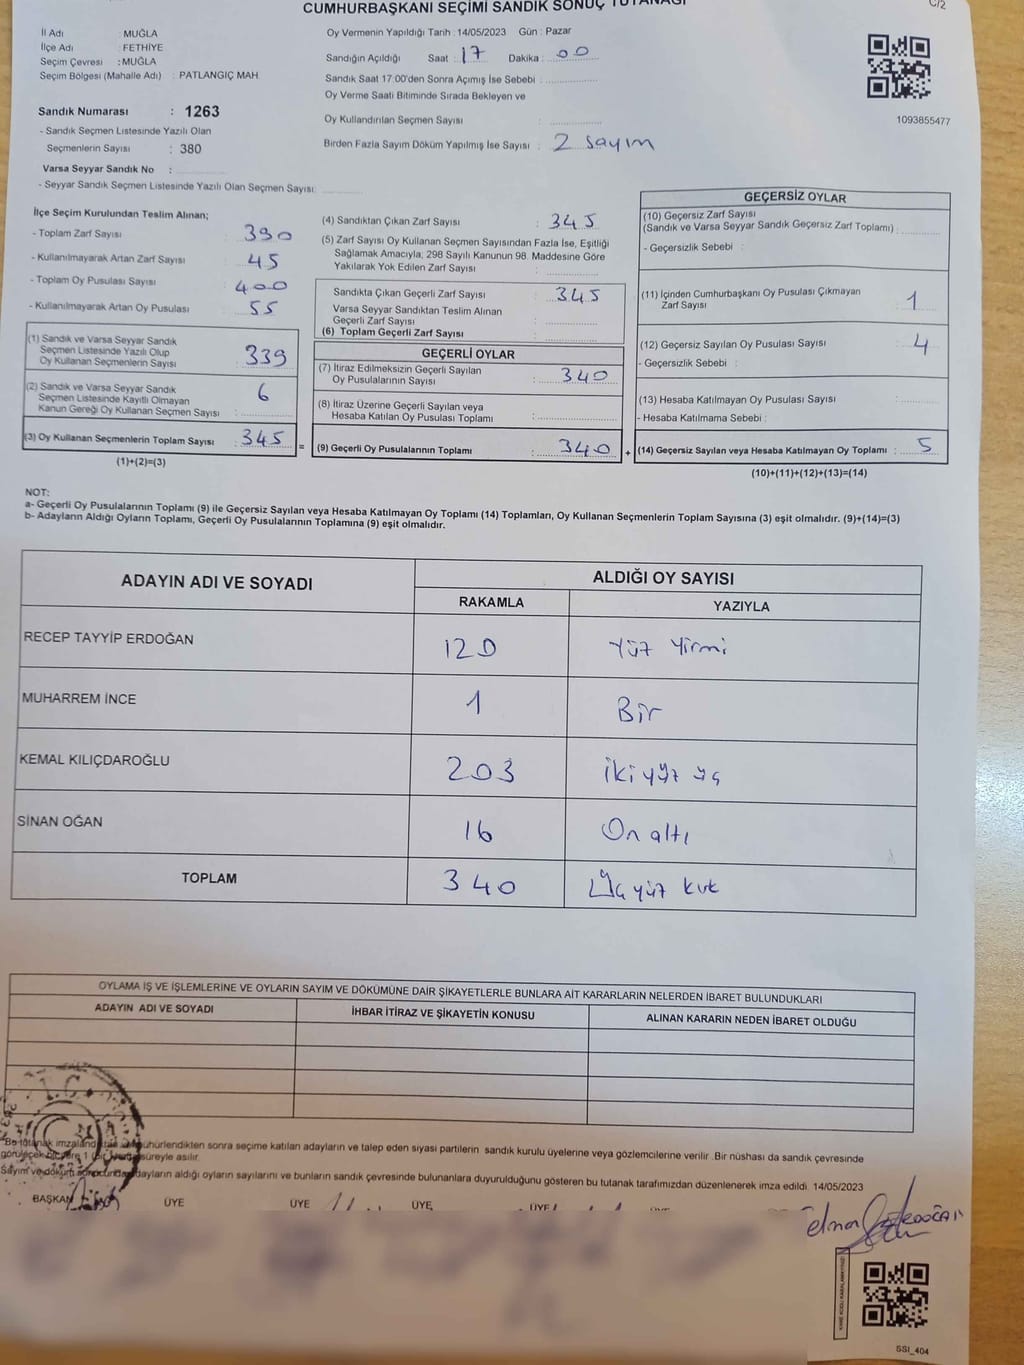 CUMHURBAŞKANI SEÇİMİ SANDIK SONUÇ TUTANAĞI
C/2
İl Adı : MUĞLA
İlçe Adı : FETHİYE
Seçim Çevresi : MUĞLA
Seçim Bölgesi (Mahalle Adı) : PATLANGIÇ MAH.
Sandık Numarası : 1263
- Sandık Seçmen Listesinde Yazılı Olan
Seçmenlerin Sayısı : 380
Varsa Seyyar Sandık No :
- Seyyar Sandık Seçmen Listesinde Yazılı Olan Seçmen Sayısı:
Oy Vermenin Yapıldığı Tarih : 14/05/2023 Gün : Pazar
Sandığın Açıldığı Saat : 17 Dakika : 00
Sandık Saat 17:00'den Sonra Açımış İse Sebebi :
Oy Verme Saati Bitiminde Sırada Bekleyen ve
Oy Kullandırılan Seçmen Sayısı :
Birden Fazla Sayım Döküm Yapılmış İse Sayısı : 2 sayım
1093855477
İlçe Seçim Kurulundan Teslim Alınan;
- Toplam Zarf Sayısı : 390
- Kullanılmayarak Artan Zarf Sayısı : 45
- Toplam Oy Pusulası Sayısı : 400
- Kullanılmayarak Artan Oy Pusulası : 55
(1) Sandık ve Varsa Seyyar Sandık
Seçmen Listesinde Yazılı Olup
Oy Kullanan Seçmenlerin Sayısı : 339
(2) Sandık ve Varsa Seyyar Sandık
Seçmen Listesinde Kayıtlı Olmayan
Kanun Gereği Oy Kullanan Seçmen Sayısı : 6
(3) Oy Kullanan Seçmenlerin Toplam Sayısı : 345 =
(1)+(2)=(3)
(4) Sandıktan Çıkan Zarf Sayısı : 345
(5) Zarf Sayısı Oy Kullanan Seçmen Sayısından Fazla İse, Eşitliği
Sağlamak Amacıyla; 298 Sayılı Kanunun 98. Maddesine Göre
Yakılarak Yok Edilen Zarf Sayısı :
Sandıkta Çıkan Geçerli Zarf Sayısı : 345
Varsa Seyyar Sandıktan Teslim Alınan
Geçerli Zarf Sayısı :
(6) Toplam Geçerli Zarf Sayısı :
GEÇERLİ OYLAR
(7) İtiraz Edilmeksizin Geçerli Sayılan
Oy Pusulalarının Sayısı : 340
(8) İtiraz Üzerine Geçerli Sayılan veya
Hesaba Katılan Oy Pusulası Toplamı :
(9) Geçerli Oy Pusulalarının Toplamı : 340 +
GEÇERSİZ OYLAR
(10) Geçersiz Zarf Sayısı
(Sandık ve Varsa Seyyar Sandık Geçersiz Zarf Toplamı) :
- Geçersizlik Sebebi :
(11) İçinden Cumhurbaşkanı Oy Pusulası Çıkmayan
Zarf Sayısı : 1
(12) Geçersiz Sayılan Oy Pusulası Sayısı : 4
- Geçersizlik Sebebi :
(13) Hesaba Katılmayan Oy Pusulası Sayısı :
- Hesaba Katılmama Sebebi :
(14) Geçersiz Sayılan veya Hesaba Katılmayan Oy Toplamı : 5
(10)+(11)+(12)+(13)=(14)
NOT:
a- Geçerli Oy Pusulalarının Toplamı (9) ile Geçersiz Sayılan veya Hesaba Katılmayan Oy Toplamı (14) Toplamları, Oy Kullanan Seçmenlerin Toplam Sayısına (3) eşit olmalıdır. (9)+(14)=(3)
b- Adayların Aldığı Oyların Toplamı, Geçerli Oy Pusulalarının Toplamına (9) eşit olmalıdır.
ADAYIN ADI VE SOYADI
ALDIĞI OY SAYISI
RAKAMLA YAZIYLA
RECEP TAYYİP ERDOĞAN 120 Yüz Yirmi
MUHARREM İNCE 1 Bir
KEMAL KILIÇDAROĞLU 203 iki yüz üç
SİNAN OĞAN 16 On altı
TOPLAM 340 Üç yüz kırk
OYLAMA İŞ VE İŞLEMLERİNE VE OYLARIN SAYIM VE DÖKÜMÜNE DAİR ŞİKAYETLERLE BUNLARA AİT KARARLARIN NELERDEN İBARET BULUNDUKLARI
ADAYIN ADI VE SOYADI İHBAR İTİRAZ VE ŞİKAYETİN KONUSU ALINAN KARARIN NEDEN İBARET OLDUĞU
T.C.
"Bu tutanak imzalandıktan ve mühürlendikten sonra seçime katılan adayların ve talep eden siyasi partilerin sandık kurulu üyelerine veya gözlemcilerine verilir. Bir nüshası da sandık çevresinde
görülecek bir yere 1 (bir) hafta süreyle asılır.
Sayım ve döküm sonucunda adayların aldığı oyların sayılarını ve bunların sandık çevresinde bulunanlara duyurulduğunu gösteren bu tutanak tarafımızdan düzenlenerek imza edildi. 14/05/2023
BAŞKAN ÜYE ÜYE ÜYE ÜYE
SSI_404